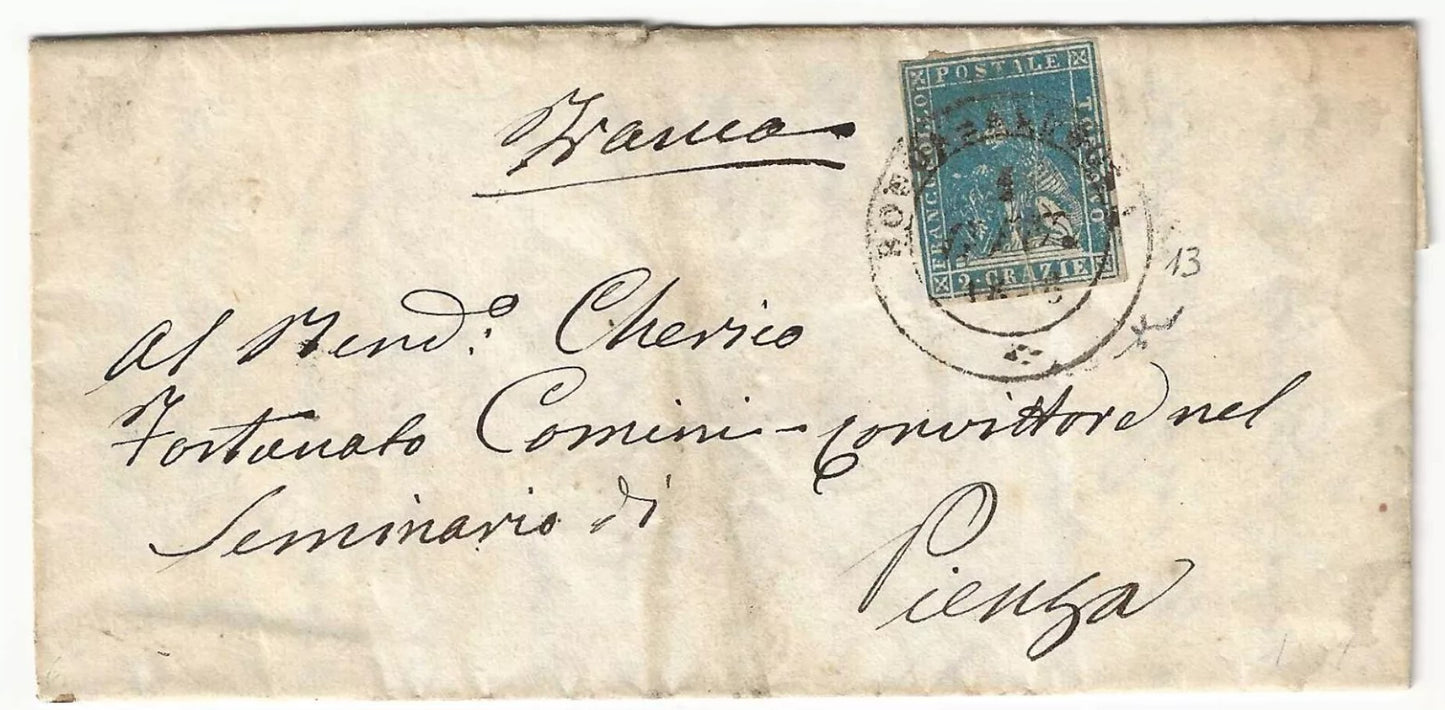 Franca
FRANCOBOLLO POSTALE TOSCANO
2. CRAZIE
1
13
Al Rend.o Cherico
Fortunato Comini - convittore nel
Seminario di
Pienza